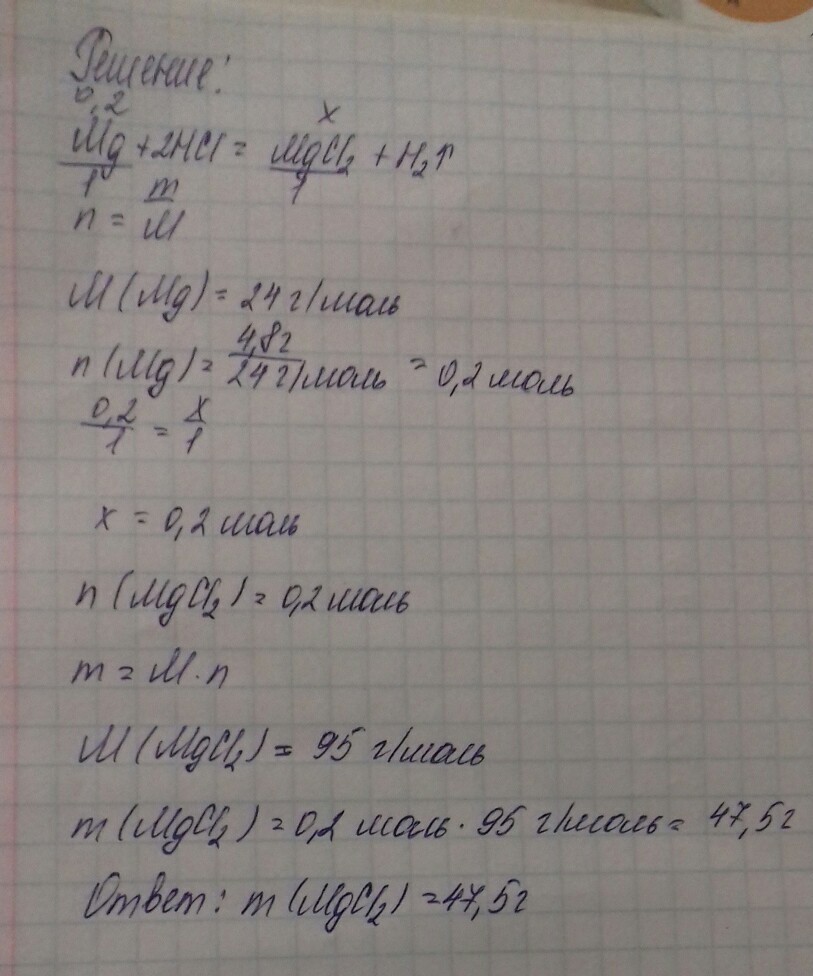 Решение:
0,2 x
Mg + 2HCl = MgCl₂ + H₂↑
1 1
n = m/M
M (Mg) = 24 г/моль
n (Mg) = 4,8г/24 г/моль = 0,2 моль
0,2/1 = x/1
x = 0,2 моль
n (MgCl₂) = 0,2 моль
m = M · n
M (MgCl₂) = 95 г/моль
m (MgCl₂) = 0,2 моль · 95 г/моль = 47,5г
Ответ: m (MgCl₂) = 47,5г